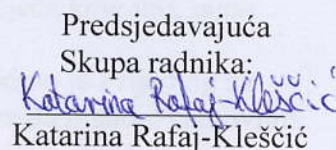 Predsjedavajuća
Skupa radnika:
Katarina Rafaj-Kleščić
Katarina Rafaj-Kleščić